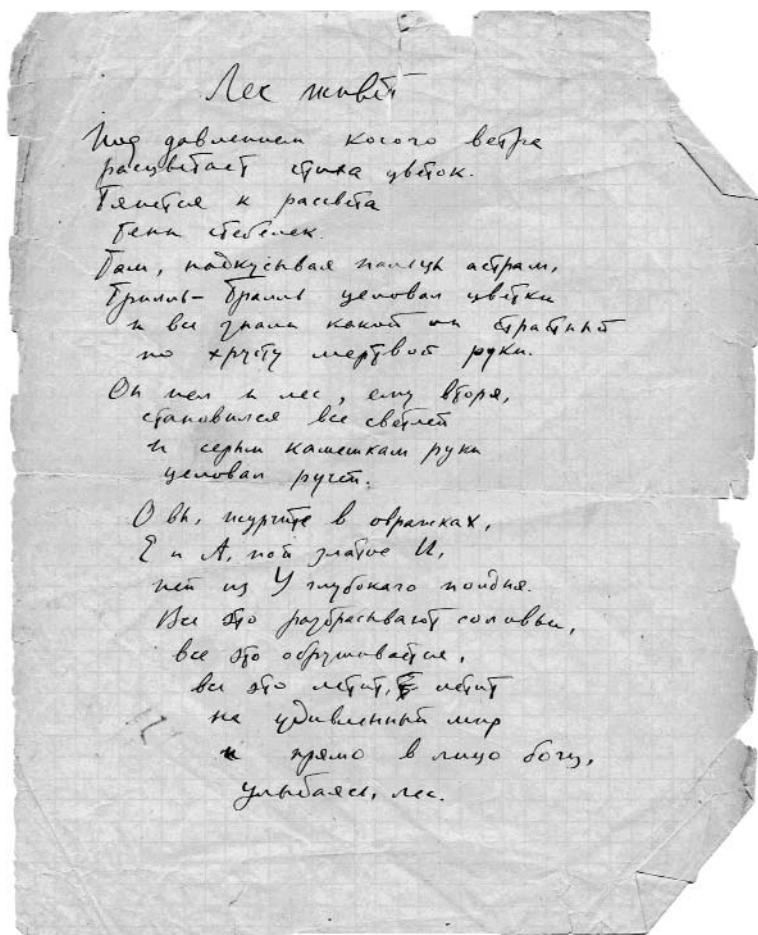 Лес живёт
Под давлением косого ветра
расцветает стиха цветок.
Тянется к рассвета
тени стебелек.
Там, надкусывая пальцы астрам,
Трилль-Тралль целовал цветки
и все знали какой он страстный
по хрусту мертвой руки.
Он пел и лес, ему вторя,
становился все светлей
и серым камешкам руки
целовал ручей.
О вы, журчите в овражках,
Е и А, пой златое И,
пей из У глубокаго полдня.
Все это разбрасывают соловьи,
все это обрушивается,
все это летит, летит
на удивленный мир
и прямо в лицо богу,
улыбаясь, лес.